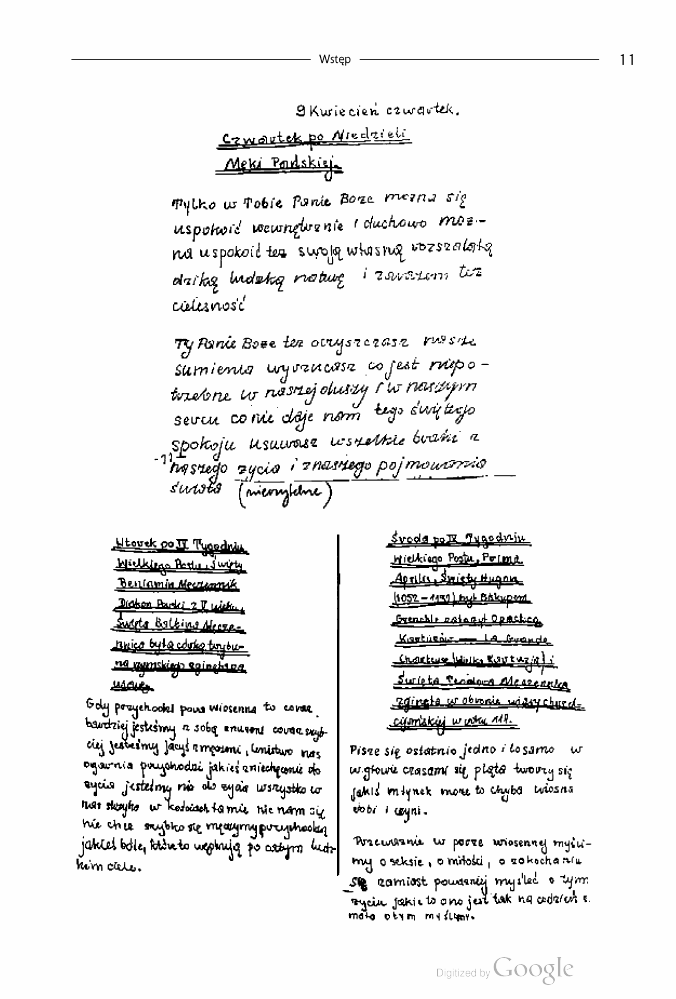 Wstęp 11
9 Kwiecień czwartek.
Czwartek po Niedzieli
Męki Pańskiej.
Tylko w Tobie Panie Boże można się
uspokoić wewnętrznie i duchowo moż-
na uspokoić też swoją własną rozszalałą
dziką ludzką naturę i zarazem też
cielesność
Ty Panie Boże też oczyszczasz nasze
sumienia wyrzucasz co jest niepo-
trzebne w naszej duszy i w naszym
sercu co nie daje nam tego świętego
spokoju usuwasz wszelkie braki z
-"- naszego życia i z naszego pojmowania
świata (nieczytelne)
Wtorek po IV Tygodniu
Wielkiego Postu, Święty
Beniamin Męczennik
Diakon Perski z V wieku,
Święta Balbina Męcze-
nnica była córką trybu-
na rzymskiego zginęła za
wiarę.
Gdy przychodzi pora wiosenna to coraz
bardziej jesteśmy z sobą znużeni coraz szyb-
ciej jesteśmy jacyś zmęczeni, lenistwo nas
ogarnia przychodzi jakieś zniechęcenie do
życia jesteśmy nie do życia wszystko w
nas skrzypi w kościach łamie nic nam się
nie chce szybko się męczymy przychodzą
jakieś bóle, które to wędrują po całym ludz-
kim ciele.
Środa po IV Tygodniu
Wielkiego Postu, Prima
Aprilis, Święty Hugon
(1052 – 1132) był Biskupem
Grenoble założył Opactwo
Kartuzów — La Grande
Chartuse (Wielka Kartuzja) i
Święta Teodora Męczennka
zginęła w obronie wiary chrześ-
cijańskiej w roku 117.
Piszę się ostatnio jedno i to samo w
w głowie czasami się pląta tworzy się
jakiś młynek może to chyba wiosna
robi i czyni.
Przeważnie w porze wiosennej myśli-
my o seksie, o miłości, o zakochaniu
się zamiast poważniej myśleć o tym
życiu jakie to ono jest tak na codzień
mało o tym myślimy.
Digitized by Google